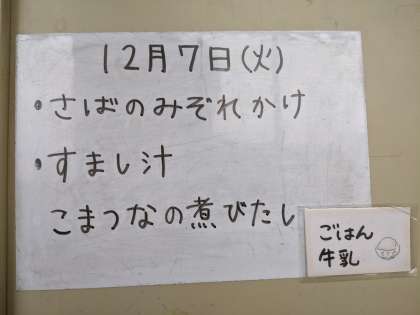 12月7日(火)
・さばのみぞれかけ
・すまし汁
こまつなの煮びたし
ごはん
牛乳